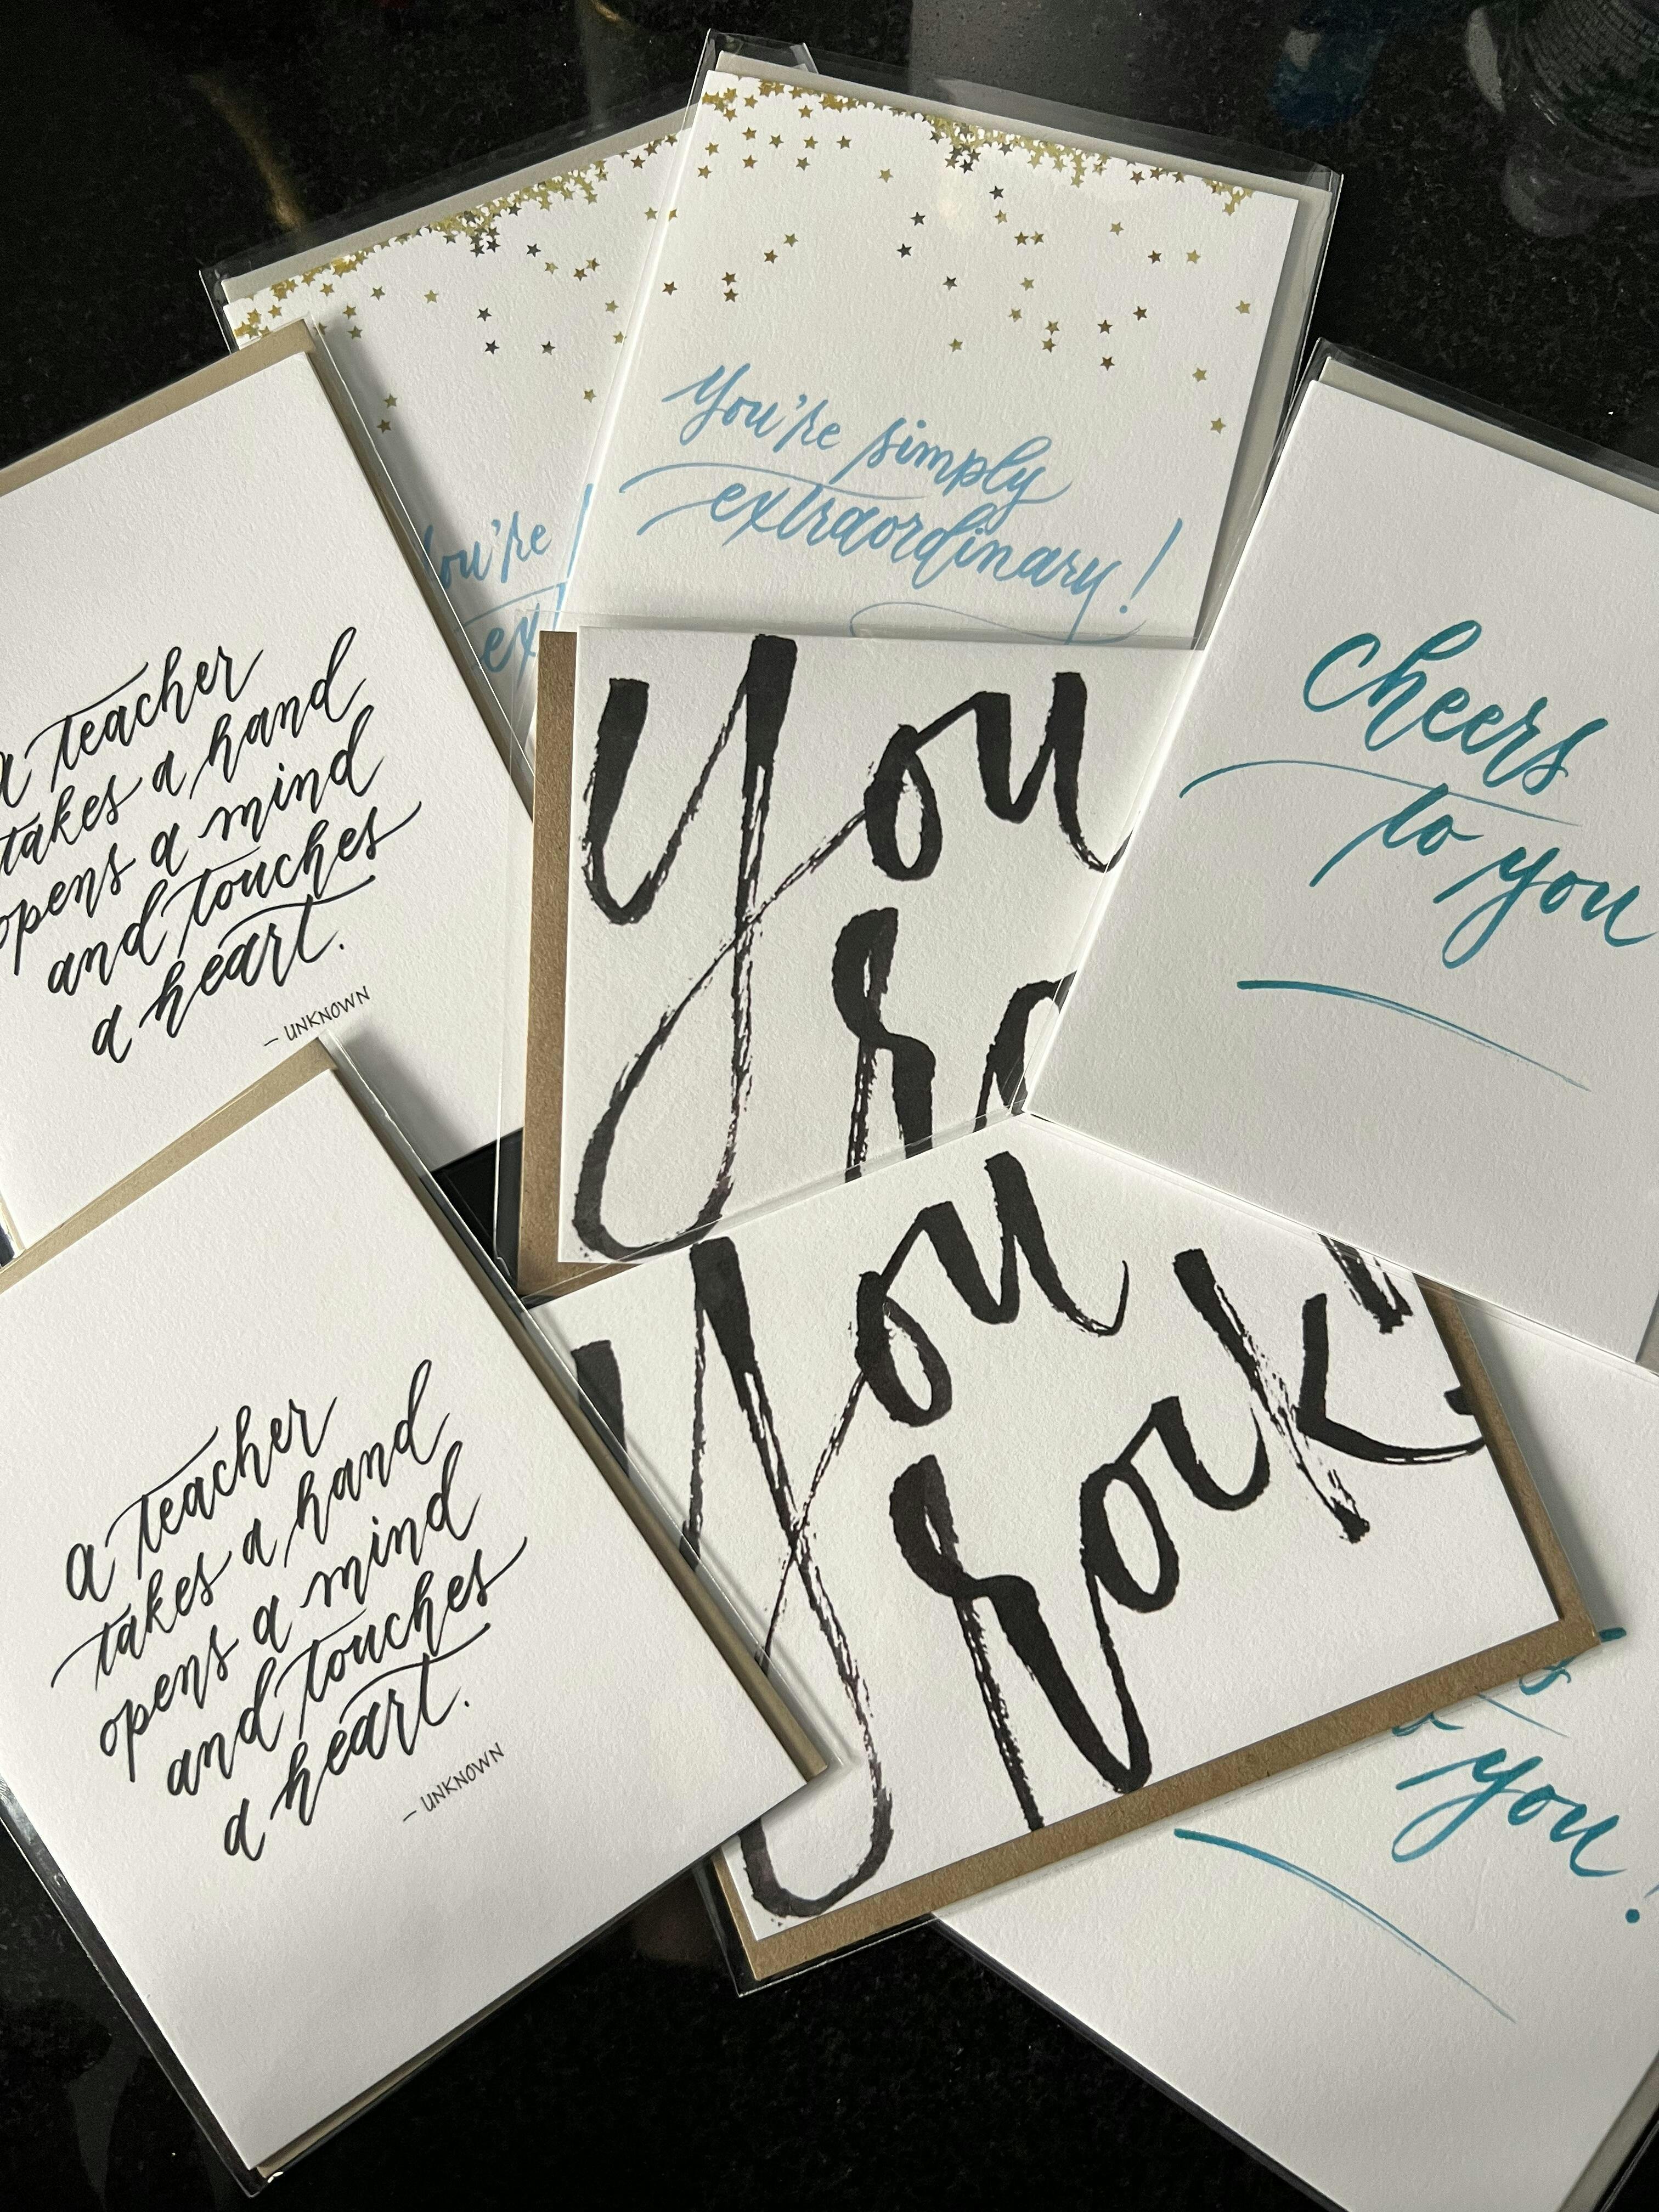 You're simply
extraordinary!
You're
a teacher
takes a hand
opens a mind
and touches
a heart.
- UNKNOWN
You
cheers
to you
a teacher
takes a hand
opens a mind
and touches
a heart.
- UNKNOWN
You
rock!
you!